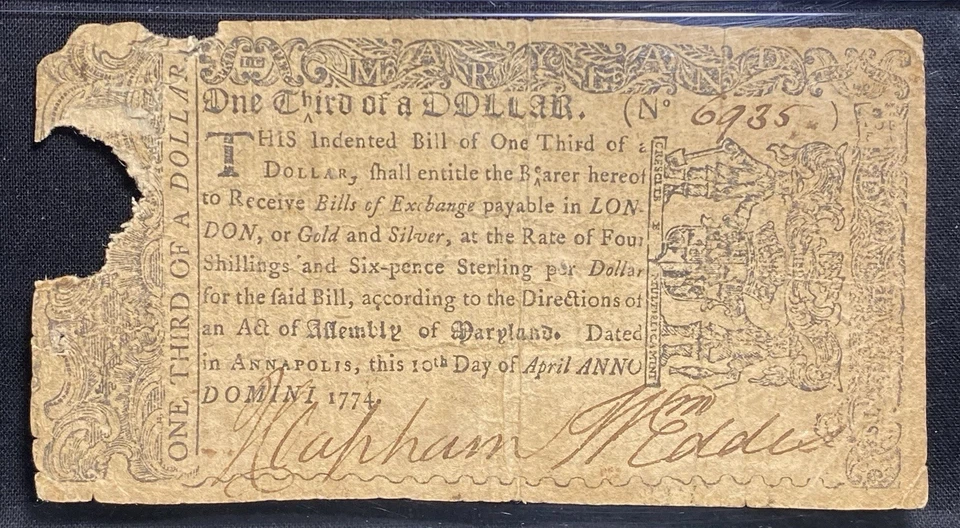 MARYLAND
One Third of a DOLLAR. (No 6935)
THIS Indented Bill of One Third of a
DOLLAR, ſhall entitle the Bearer hereof
to Receive Bills of Exchange payable in LON-
DON, or Gold and Silver, at the Rate of Four
Shillings and Six-pence Sterling per Dollar
for the ſaid Bill, according to the Directions of
an Act of Aſſembly of Maryland. Dated
in ANNAPOLIS, this 10th Day of April ANNO
DOMINI 1774
J Clapham Wm Eddis
ONE THIRD OF A DOLLAR